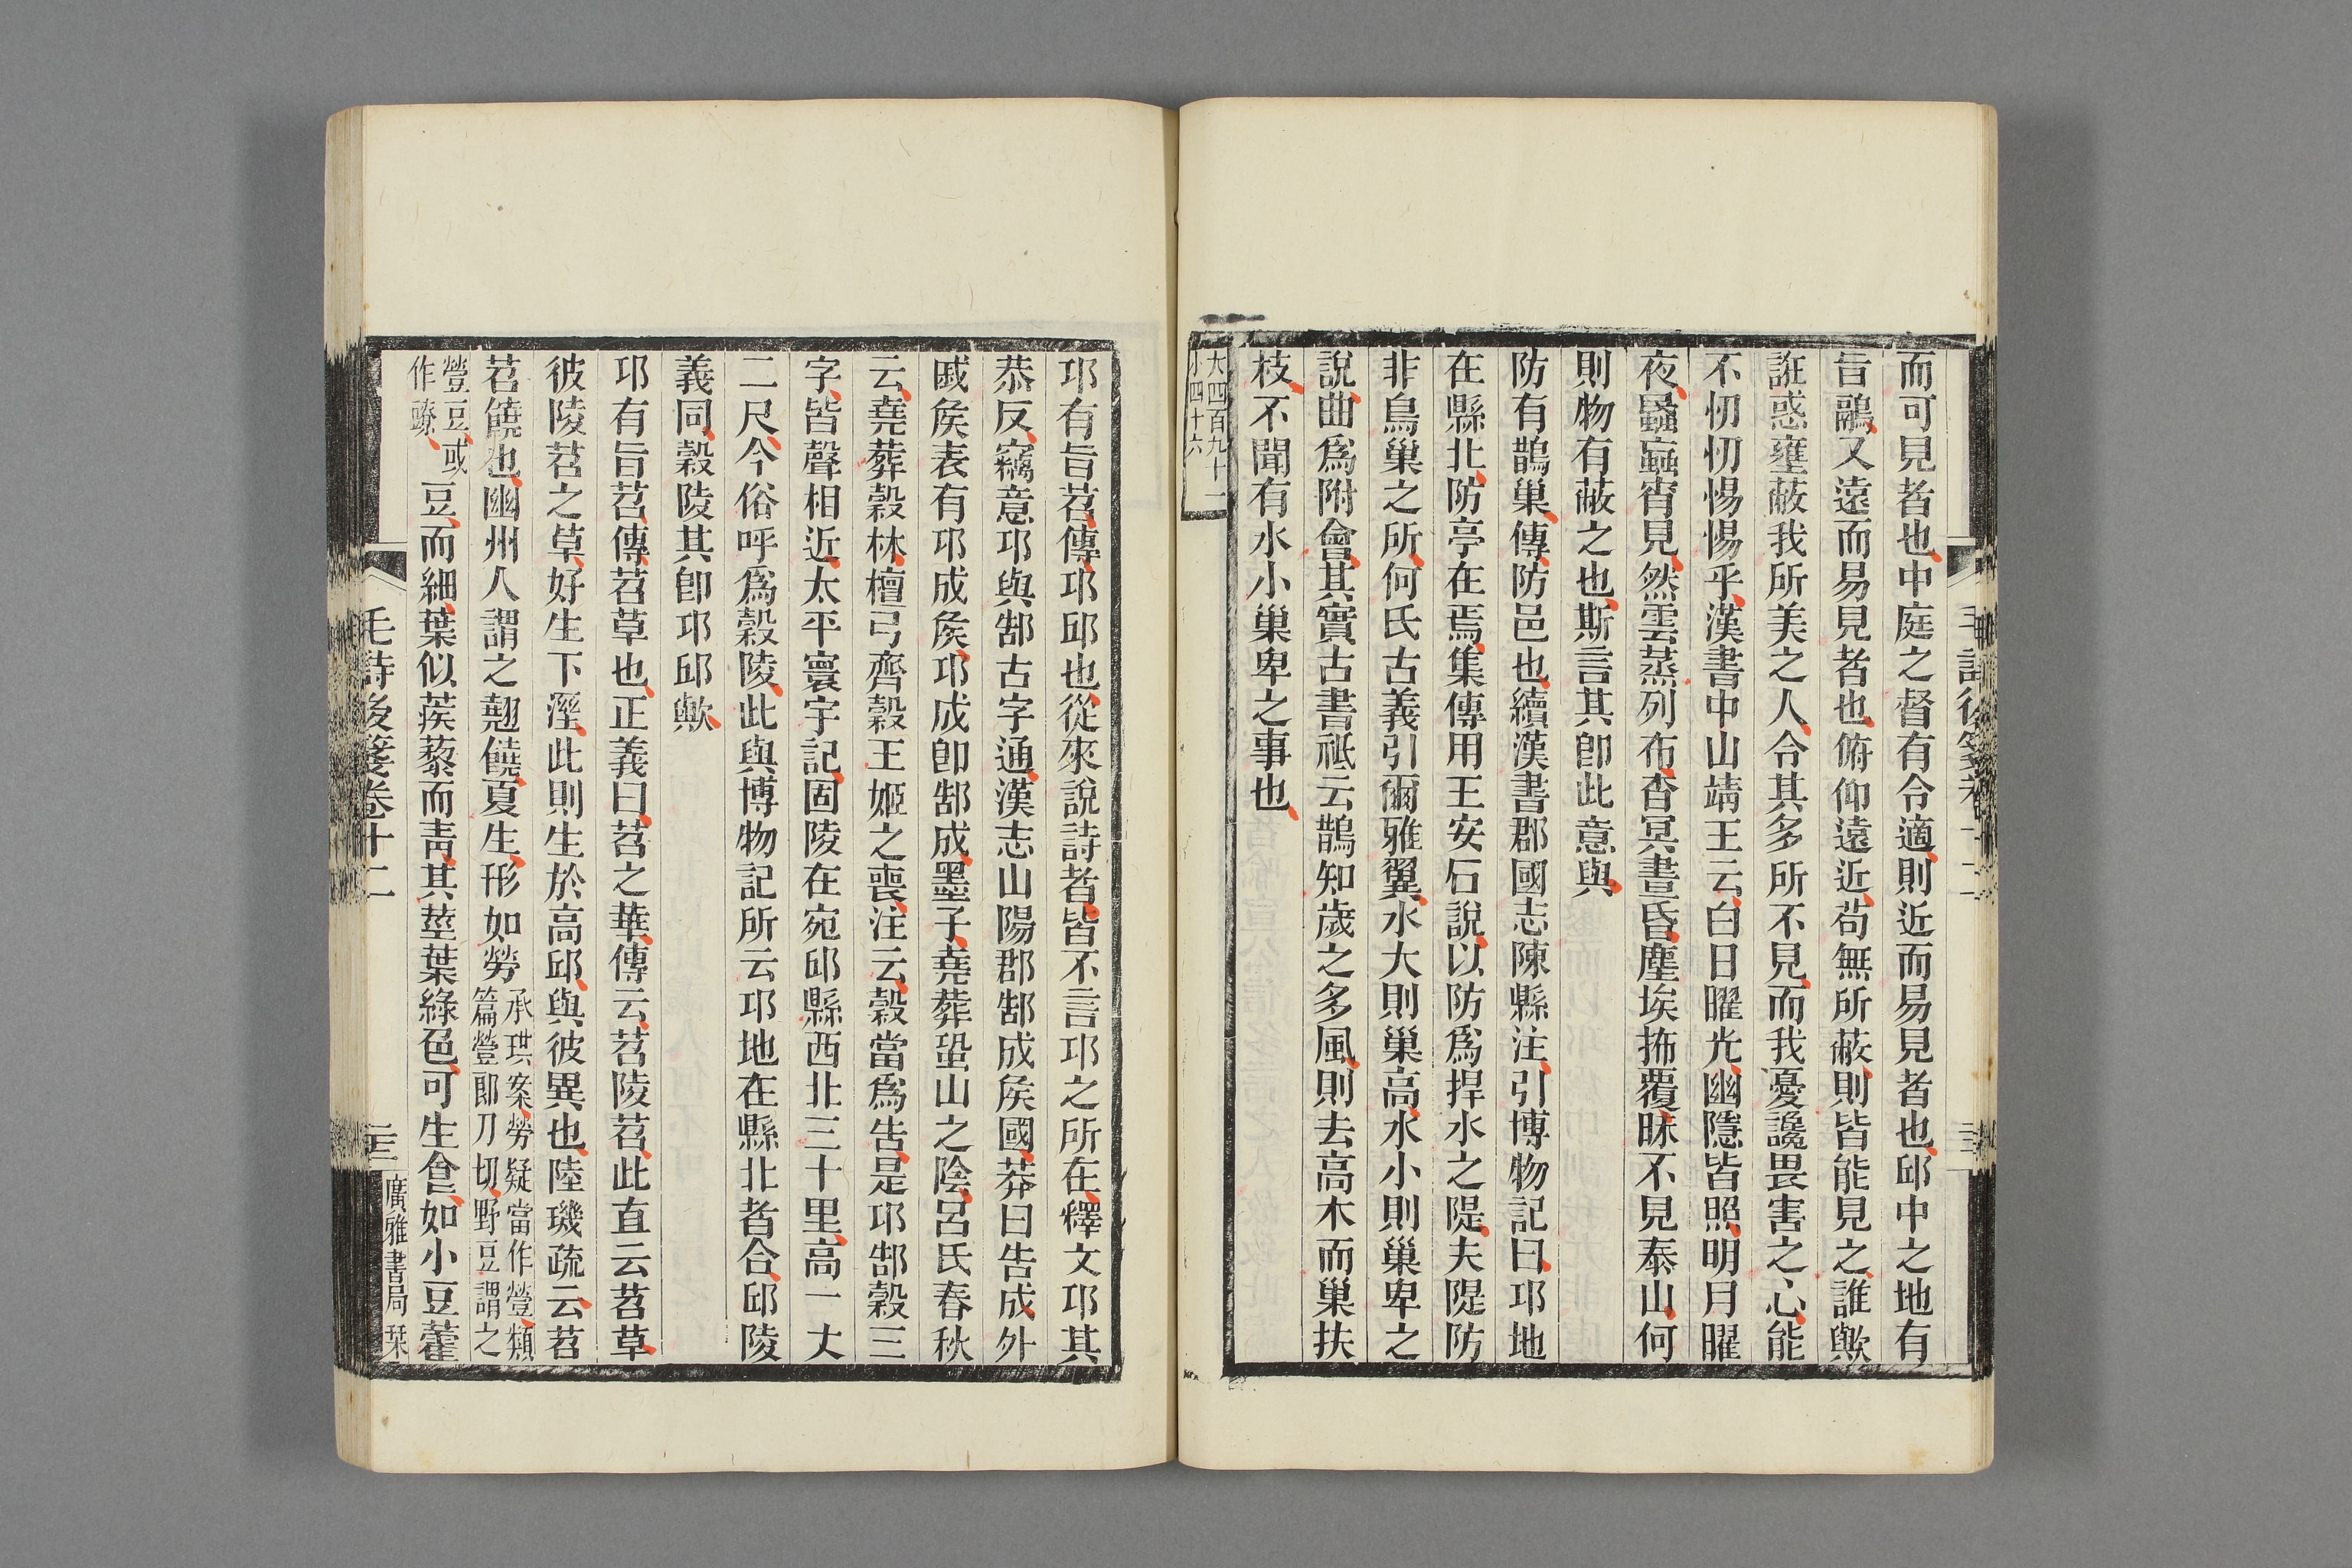 而可見者也中庭之督有令適則近而易見者也邱中之地有
旨鷊又遠而易見者也俯仰遠近苟無所蔽則皆能見之誰歟
誑惑壅蔽我所美之人令其多所不見而我憂讒畏害之心能
不忉忉惕惕乎漢書中山靖王云白日曜光幽隱皆照明月曜
夜蟁蝱宵見然雲蒸列布杳冥晝昏塵埃抪覆昧不見泰山何
則物有蔽之也斯言其卽此意與
防有鵲巢傳防邑也續漢書郡國志陳縣注引博物記曰邛地
在縣北防亭在焉集傳用王安石說以防爲捍水之隄夫隄防
非鳥巢之所何氏古義引爾雅翼水大則巢高水小則巢卑之
說曲爲附會其實古書祗云鵲知歲之多風則去高木而巢扶
枝不聞有水小巢卑之事也
大四百九十一
小四十六
邛有旨苕傳邛邱也從來說詩者皆不言邛之所在釋文邛其
恭反竊意邛與郜古字通漢志山陽郡郜成矦國莽曰告成外
戚矦表有邛成矦邛成卽郜成墨子堯葬蛩山之陰呂氏春秋
云堯葬穀林檀弓齊穀王姬之喪注云穀當爲告是邛郜穀三
字皆聲相近太平寰宇記固陵在宛邱縣西北三十里高一丈
二尺今俗呼爲穀陵此與博物記所云邛地在縣北者合邱陵
義同穀陵其卽邛邱歟
邛有旨苕傳苕草也正義曰苕之華傳云苕陵苕此直云苕草
彼陵苕之草好生下溼此則生於高邱與彼異也陸璣疏云苕
苕饒也幽州人謂之翹饒夏生形如勞承珙案勞疑當作䝁類
篇䝁郎刀切野豆謂之
䝁豆或
作䝤豆而細葉似蒺藜而靑其莖葉綠色可生食如小豆藿
毛詩後箋卷十二
廣雅書局栞